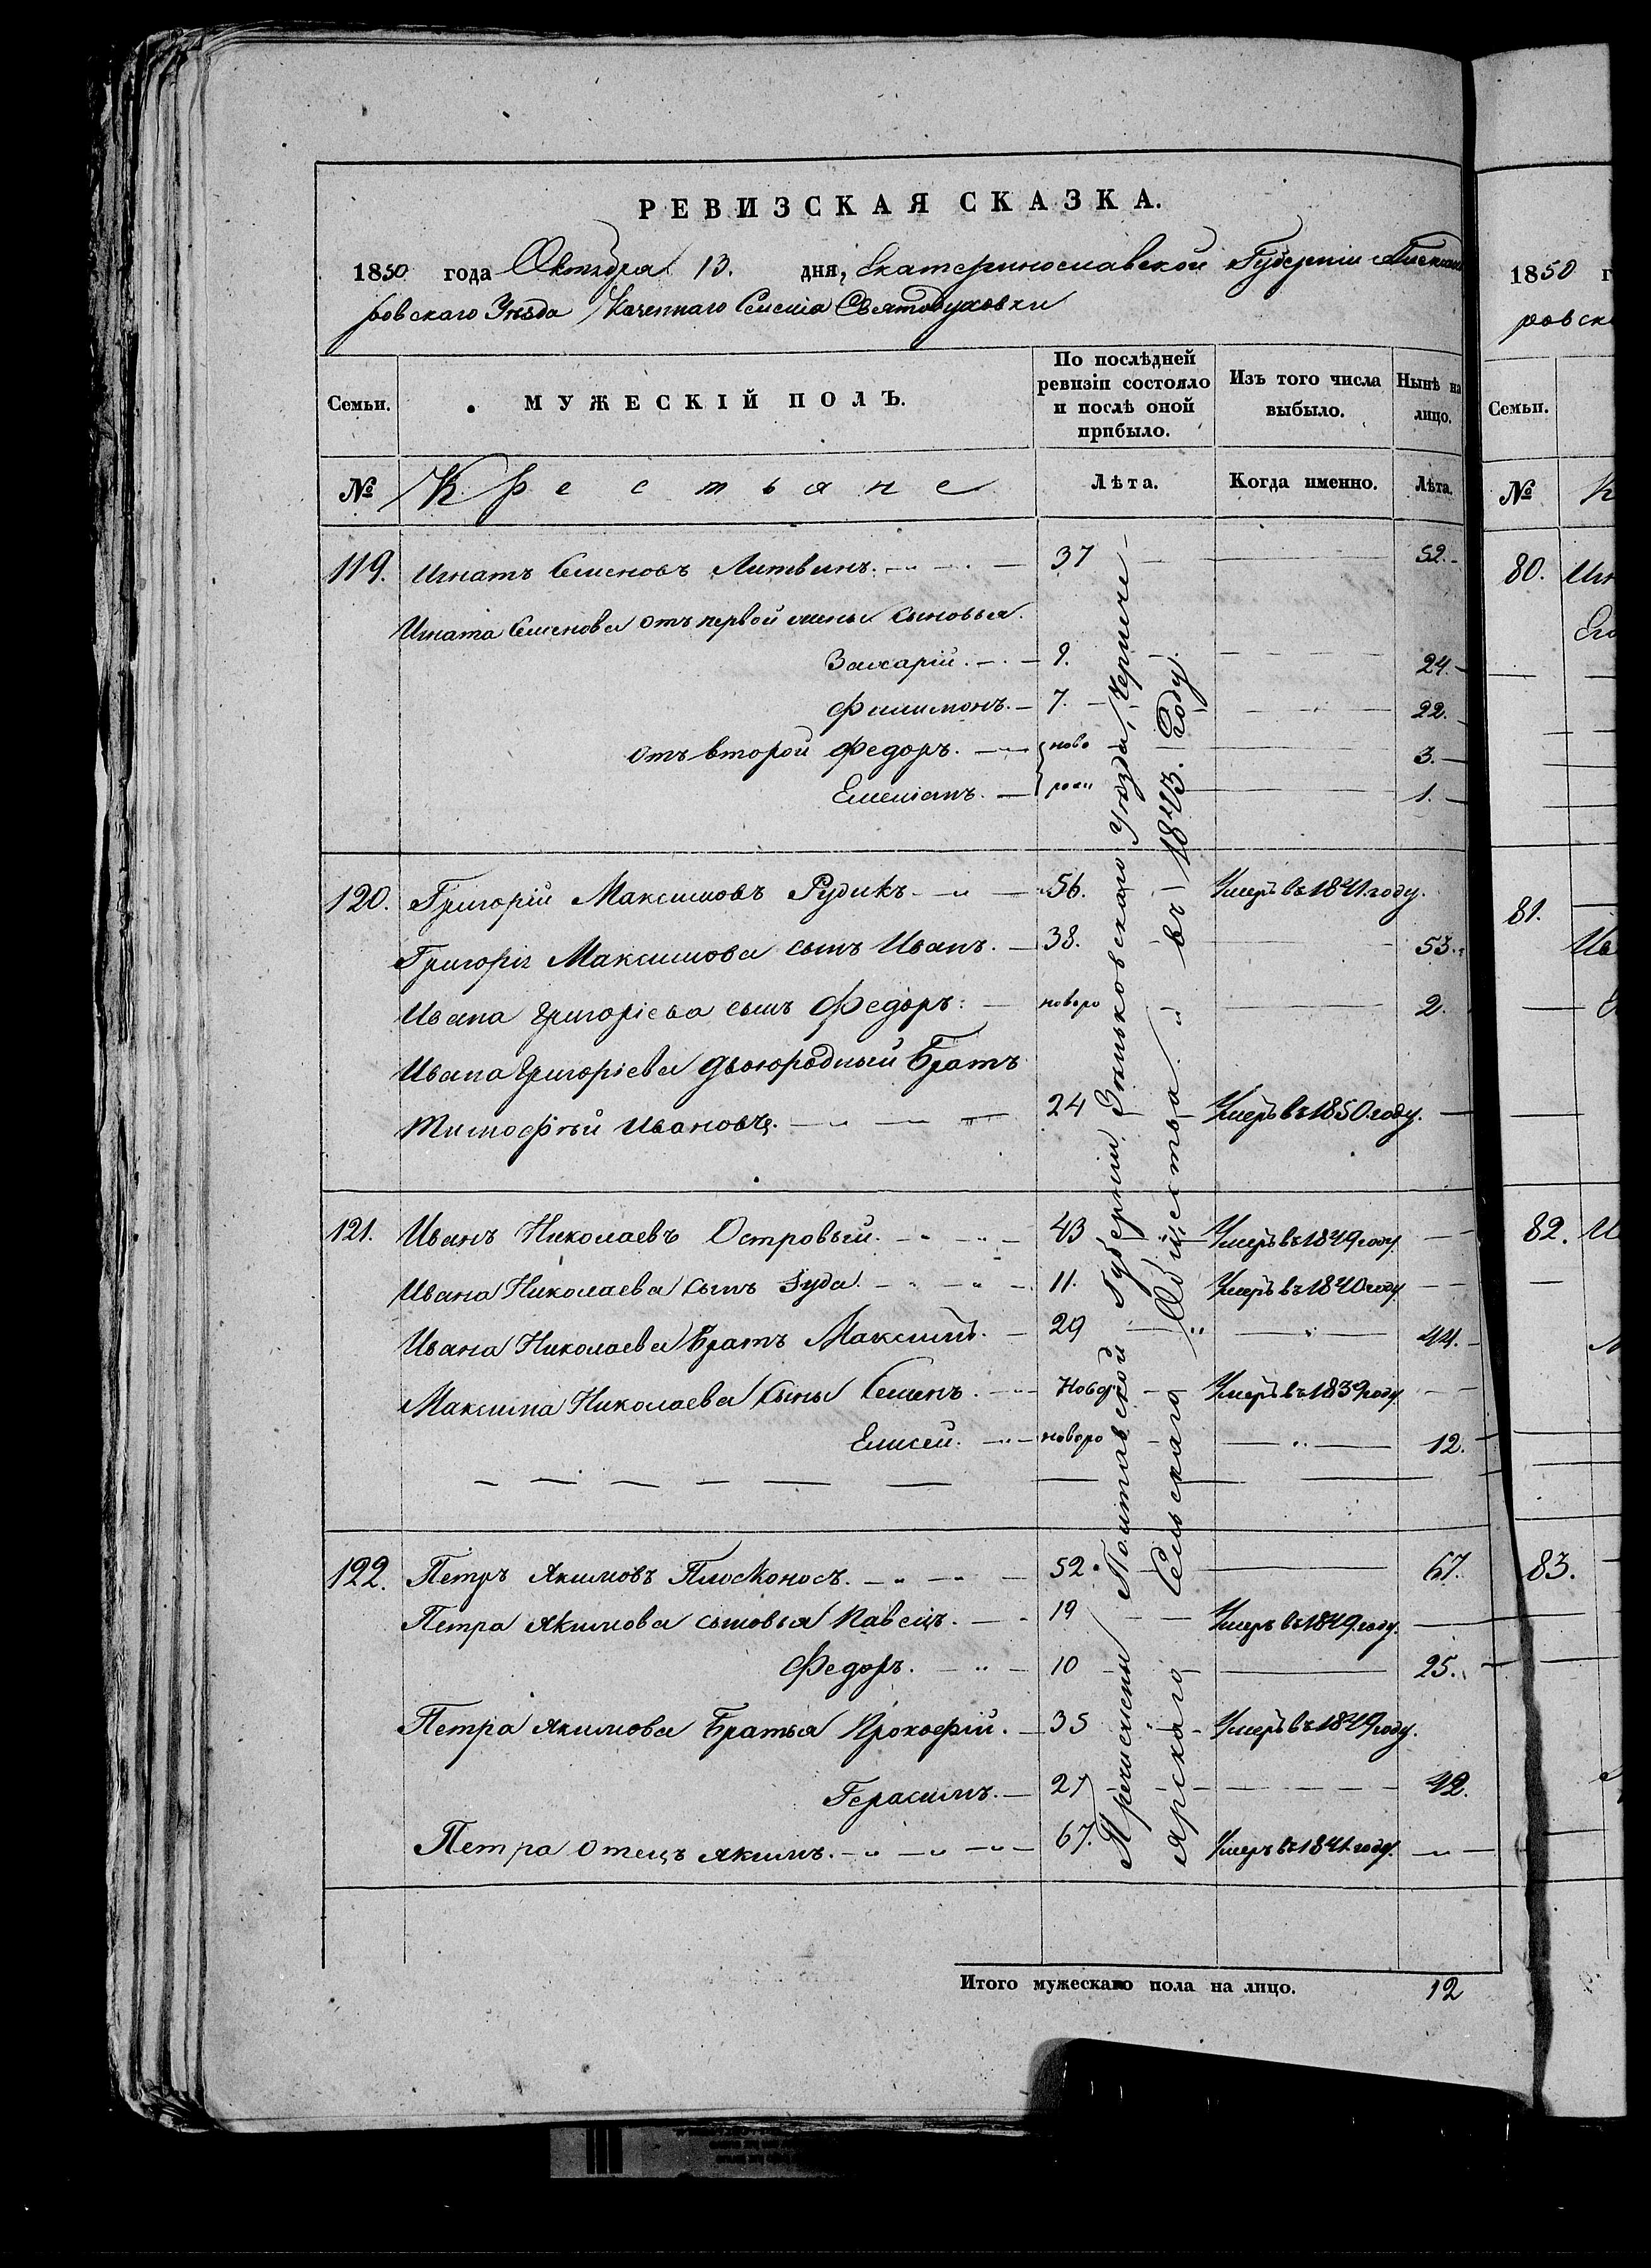 РЕВИЗСКАЯ СКАЗКА.
1850 года Октября 13. дня, Екатеринославской Губерніи Алексан
ровскаго Уѣзда Казеннаго Селенія Святодуховки
Семьи.
МУЖЕСКІЙ ПОЛЪ.
По послѣдней ревизіи состояло и послѣ оной прибыло.
Изъ того числа выбыло.
Нынѣ на лицо.
№ Крестьяне Лѣта. Когда именно. Лѣта.
119. Игнатъ Семеновъ Литвинъ. 37 52.
Игната Семенова отъ первой жены сыновья.
Захарій. 9. 24.
Филимонъ. 7. 22.
отъ второй Федоръ. ново 3.
Емеліанъ. рожд 1.
120. Григорій Максимовъ Рудикъ 56. Умеръ въ 1841. году.
Григорія Максимова сынъ Иванъ. 38. 53.
Ивана Григоріева сынъ Федоръ. новоро 2.
Ивана Григоріева двоюродный Братъ
Тимофѣй Ивановъ. 24 Умеръ въ 1850 году.
121. Иванъ Николаевъ Островый. 43 Умеръ въ 1849 году.
Ивана Николаева сынъ Іуда. 11. Умеръ въ 1840 году.
Ивана Николаева Братъ Максимъ. 29 44.
Максима Николаева сыны Семенъ. Новор Умеръ въ 1839 году.
Елисей. новоро 12.
122. Петръ Якимовъ Плосконосъ. 52. 67.
Петра Якимова сыновья Павелъ. 19 Умеръ въ 1849. году.
Федоръ. 10 25.
Петра Якимова Братья Прокофій. 35 Умеръ въ 1849 году.
Герасимъ. 27 42.
Петра Отецъ Якимъ. 67. Умеръ въ 1841. году.
Причислены Полтавской Губерніи Зѣньковскаго Уѣзда,
ярскаго Сельскаго Общества въ 1843. Году.
Итого мужескаго пола на лицо. 12
1850 г
ровск
Семьи.
№
80.
81.
82.
83.